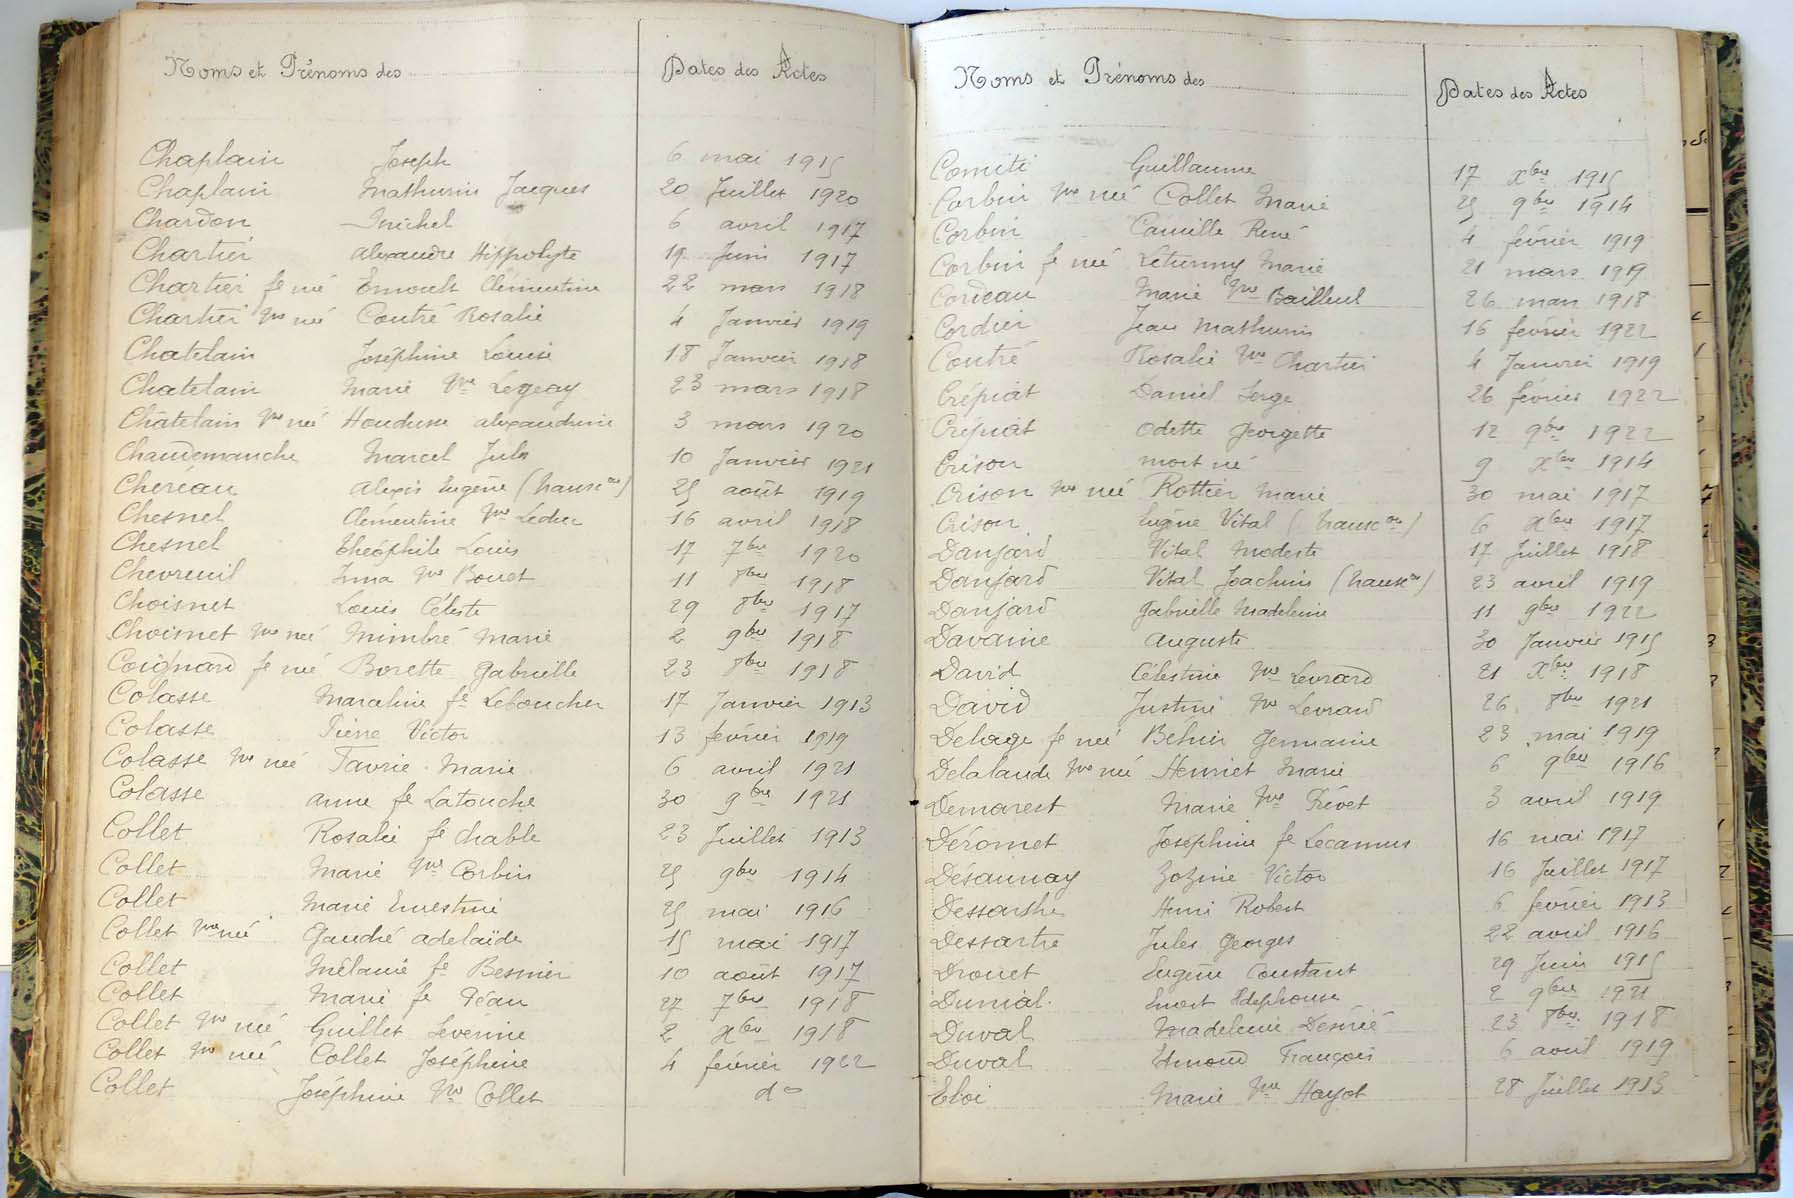 Noms et Prénoms des Dates des Actes
Chaplain Joseph 6 mai 1915
Chaplain Mathurin Jacques 20 Juillet 1920
Chardon Michel 6 avril 1917
Chartier alexandre Hippolyte 19 Juin 1917
Chartier fe née Ernoult Clémentine 22 mars 1918
Chartier Vve née Coutré Rosalie 4 Janvier 1919
Chatelain Joséphine Louise 18 Janvier 1918
Chatelain Marie Vve Legeay 23 mars 1918
Châtelain Vve née Houdusse alexandrine 3 mars 1920
Chaudemanche Marcel Jules 10 Janvier 1921
Chereau alexis Eugène (transc on) 25 août 1919
Chesnel Clémentine Vve Leduc 16 avril 1918
Chesnel théophile Louis 17 7bre 1920
Chevreuil Irma Vve Bouet 11 8bre 1918
Choisnet Louis Céleste 29 8bre 1917
Choisnet Vve née Mimbré Marie 2 9bre 1918
Coignard fe née Borette Gabrielle 23 8bre 1918
Colasse Marceline fe Leboucher 17 Janvier 1913
Colasse Pierre Victor 13 février 1919
Colasse Vve née Favrie Marie 6 avril 1921
Colasse anne fe Latouche 30 9bre 1921
Collet Rosalie fe Chable 23 Juillet 1913
Collet Marie Vve Corbin 25 9bre 1914
Collet Marie Ernestine 25 mai 1916
Collet Vve née Gauché adelaïde 15 mai 1917
Collet Mélanie fe Besnier 10 août 1917
Collet Marie fe Péan 27 7bre 1918
Collet Vve née Guillet Séverine 2 xbre 1918
Collet Vve née Collet Joséphine 4 février 1922
Collet Joséphine Vve Collet do
Noms et Prénoms des Dates des Actes
Comiti Guillaume 17 xbre 1915
Corbin Vve née Collet Marie 25 9bre 1914
Corbin Camille René 4 février 1919
Corbin fe née Leturmy Marie 21 mars 1919
Cordeau Marie Vve Bailleul 26 mars 1918
Cordier Jean Mathurin 16 février 1922
Coutré Rosalie Vve Chartier 4 Janvier 1919
Crépiat Daniel Serge 26 février 1922
Crépiat Odette Georgette 12 9bre 1922
Crison mort né 9 xbre 1914
Crison Vve née Rottier Marie 30 mai 1917
Crison Eugène Vital (transc on) 6 xbre 1917
Danjard Vital Modeste 17 Juillet 1918
Danjard Vital Joachim (transc on) 23 avril 1919
Danjard Gabrielle Madeleine 11 9bre 1922
Davaine auguste 30 Janvier 1915
David Célestine Vve Levrard 21 Xbre 1918
David Justine Vve Levrard 26 8bre 1921
Delage fe née Béhin Germaine 23 mai 1919
Delalande Vve née Henriet Marie 6 9bre 1916
Demarest Marie Vve Prévet 3 avril 1919
Déromet Joséphine fe Lecamus 16 mai 1917
Désaunay Zozime Victor 16 Juillet 1917
Dessarthe Henri Robert 6 février 1913
Dessartre Jules Georges 22 avril 1916
Drouet Eugène Constant 29 Juin 1915
Dumial Ernest Ildephonse 2 9bre 1921
Duval Madeleine Désirée 23 8bre 1918
Duval Edmond François 6 avril 1919
Eloi Marie Vve Hayot 28 Juillet 1913